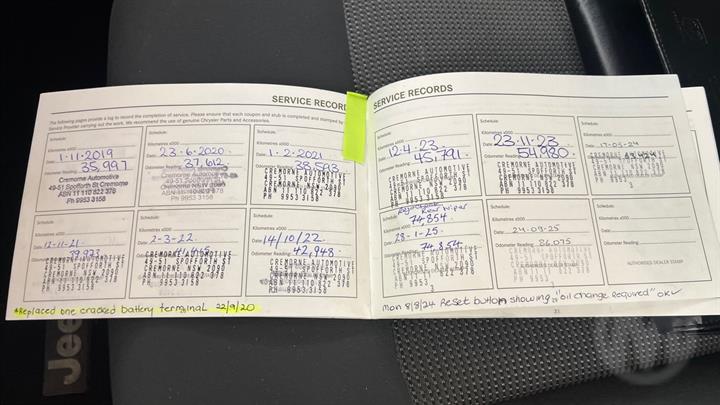 SERVICE RECORD
The following pages provide a log to record the completion of service. Please ensure that each coupon and stub is completed and stamped by
Service Provider carrying out the work. We recommend the use of genuine Chrysler Parts and Accessories.
Schedule:
Kilometres x000
Date: 1-11-2019
Odometer Reading: 35,997
Cremorne Automotive
49-51 Spofforth St Cremorne
ABN 11 110 822 378
Ph 9953 3158
Schedule:
Kilometres x000
Date: 23-6-2020.
Odometer Reading: 37,612
Cremorne Automotive
49-51 Spofforth St
Cremorne NSW 2090
ABN 11 110 822 378
Ph 9953 3158
Schedule:
Kilometres x000
Date: 1-2-2021
Odometer Reading: 38,593
CREMORNE AUTOMOTIVE
49-51 SPOFFORTH ST
CREMORNE NSW 2090
ABN 11 110 822 378
PH 9953 3158
Schedule:
Kilometres x000
Date: 12-11-21
39,923
CREMORNE AUTOMOTIVE
49-51 SPOFFORTH ST
CREMORNE NSW 2090
ABN 11 110 822 378
PH 9953 3158
Schedule:
Kilometres x000
Date: 2-3-22
CREMORNE AUTOMOTIVE
49-51 SPOFFORTH ST
CREMORNE NSW 2090
ABN 11 110 822 378
PH 9953 3158
Schedule:
Kilometres x000
Date: 14/10/22
Odometer Reading: 42,948.
CREMORNE AUTOMOTIVE
49-51 SPOFFORTH ST
CREMORNE NSW 2090
ABN 11 110 822 378
PH 9953 3158
*Replaced one cracked battery terminal 22/9/20
SERVICE RECORDS
Schedule:
Kilometres x000
Date: 12-4-23
Odometer Reading: 45,791.
CREMORNE AUTOMOTIVE
49-51 SPOFFORTH ST
CREMORNE NSW 2090
ABN 11 110 822 378
PH 9953 3158
Schedule:
Kilometres x000
Date: 23.11.23
Odometer Reading: 54,980
CREMORNE AUTOMOTIVE
49-51 SPOFFORTH ST
CREMORNE NSW 2090
ABN 11 110 822 378
PH 9953 3158
Schedule:
Kilometres x000
Date: 17-05-24
Schedule:
Rear Wiper
74,854.
Date: 28-1-25.
Odometer Reading: 74,854
Schedule:
Kilometres x000
Date: 24-09-25
Odometer Reading: 86,075
Schedule:
Kilometres x000
Date:
Odometer Reading:
AUTHORISED DEALER STAMP
Mon 8/8/24 Reset button showing "oil change required" OK✓
21
Jee